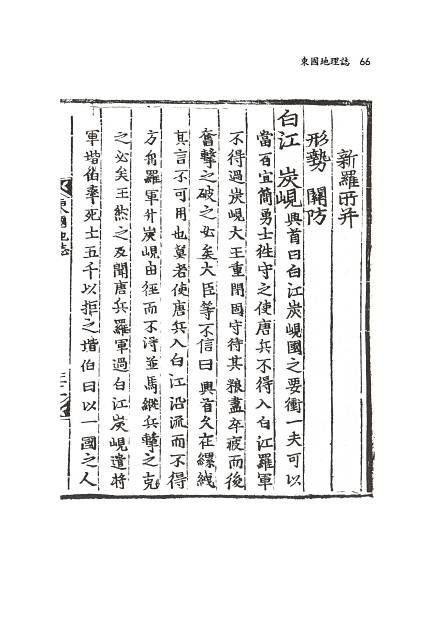 東國地理誌 66
新羅所并
形勢 關防
白江 炭峴 興首曰白江炭峴國之要衝一夫可以
當百宜簡勇士徃守之使唐兵不得入白江羅軍
不得過炭峴大王重閉固守待其粮盡卒疲而後
奮擊之破之必矣大臣等不信曰興首久在縲絏
其言不可用也莫若使唐兵入白江沿流而不得
方舟羅軍升炭峴由徑而不得並馬縱兵擊之克
之必矣王然之及聞唐兵羅軍過白江炭峴遣將
軍堦伯率死士五千以拒之堦伯曰以一國之人
東國地誌